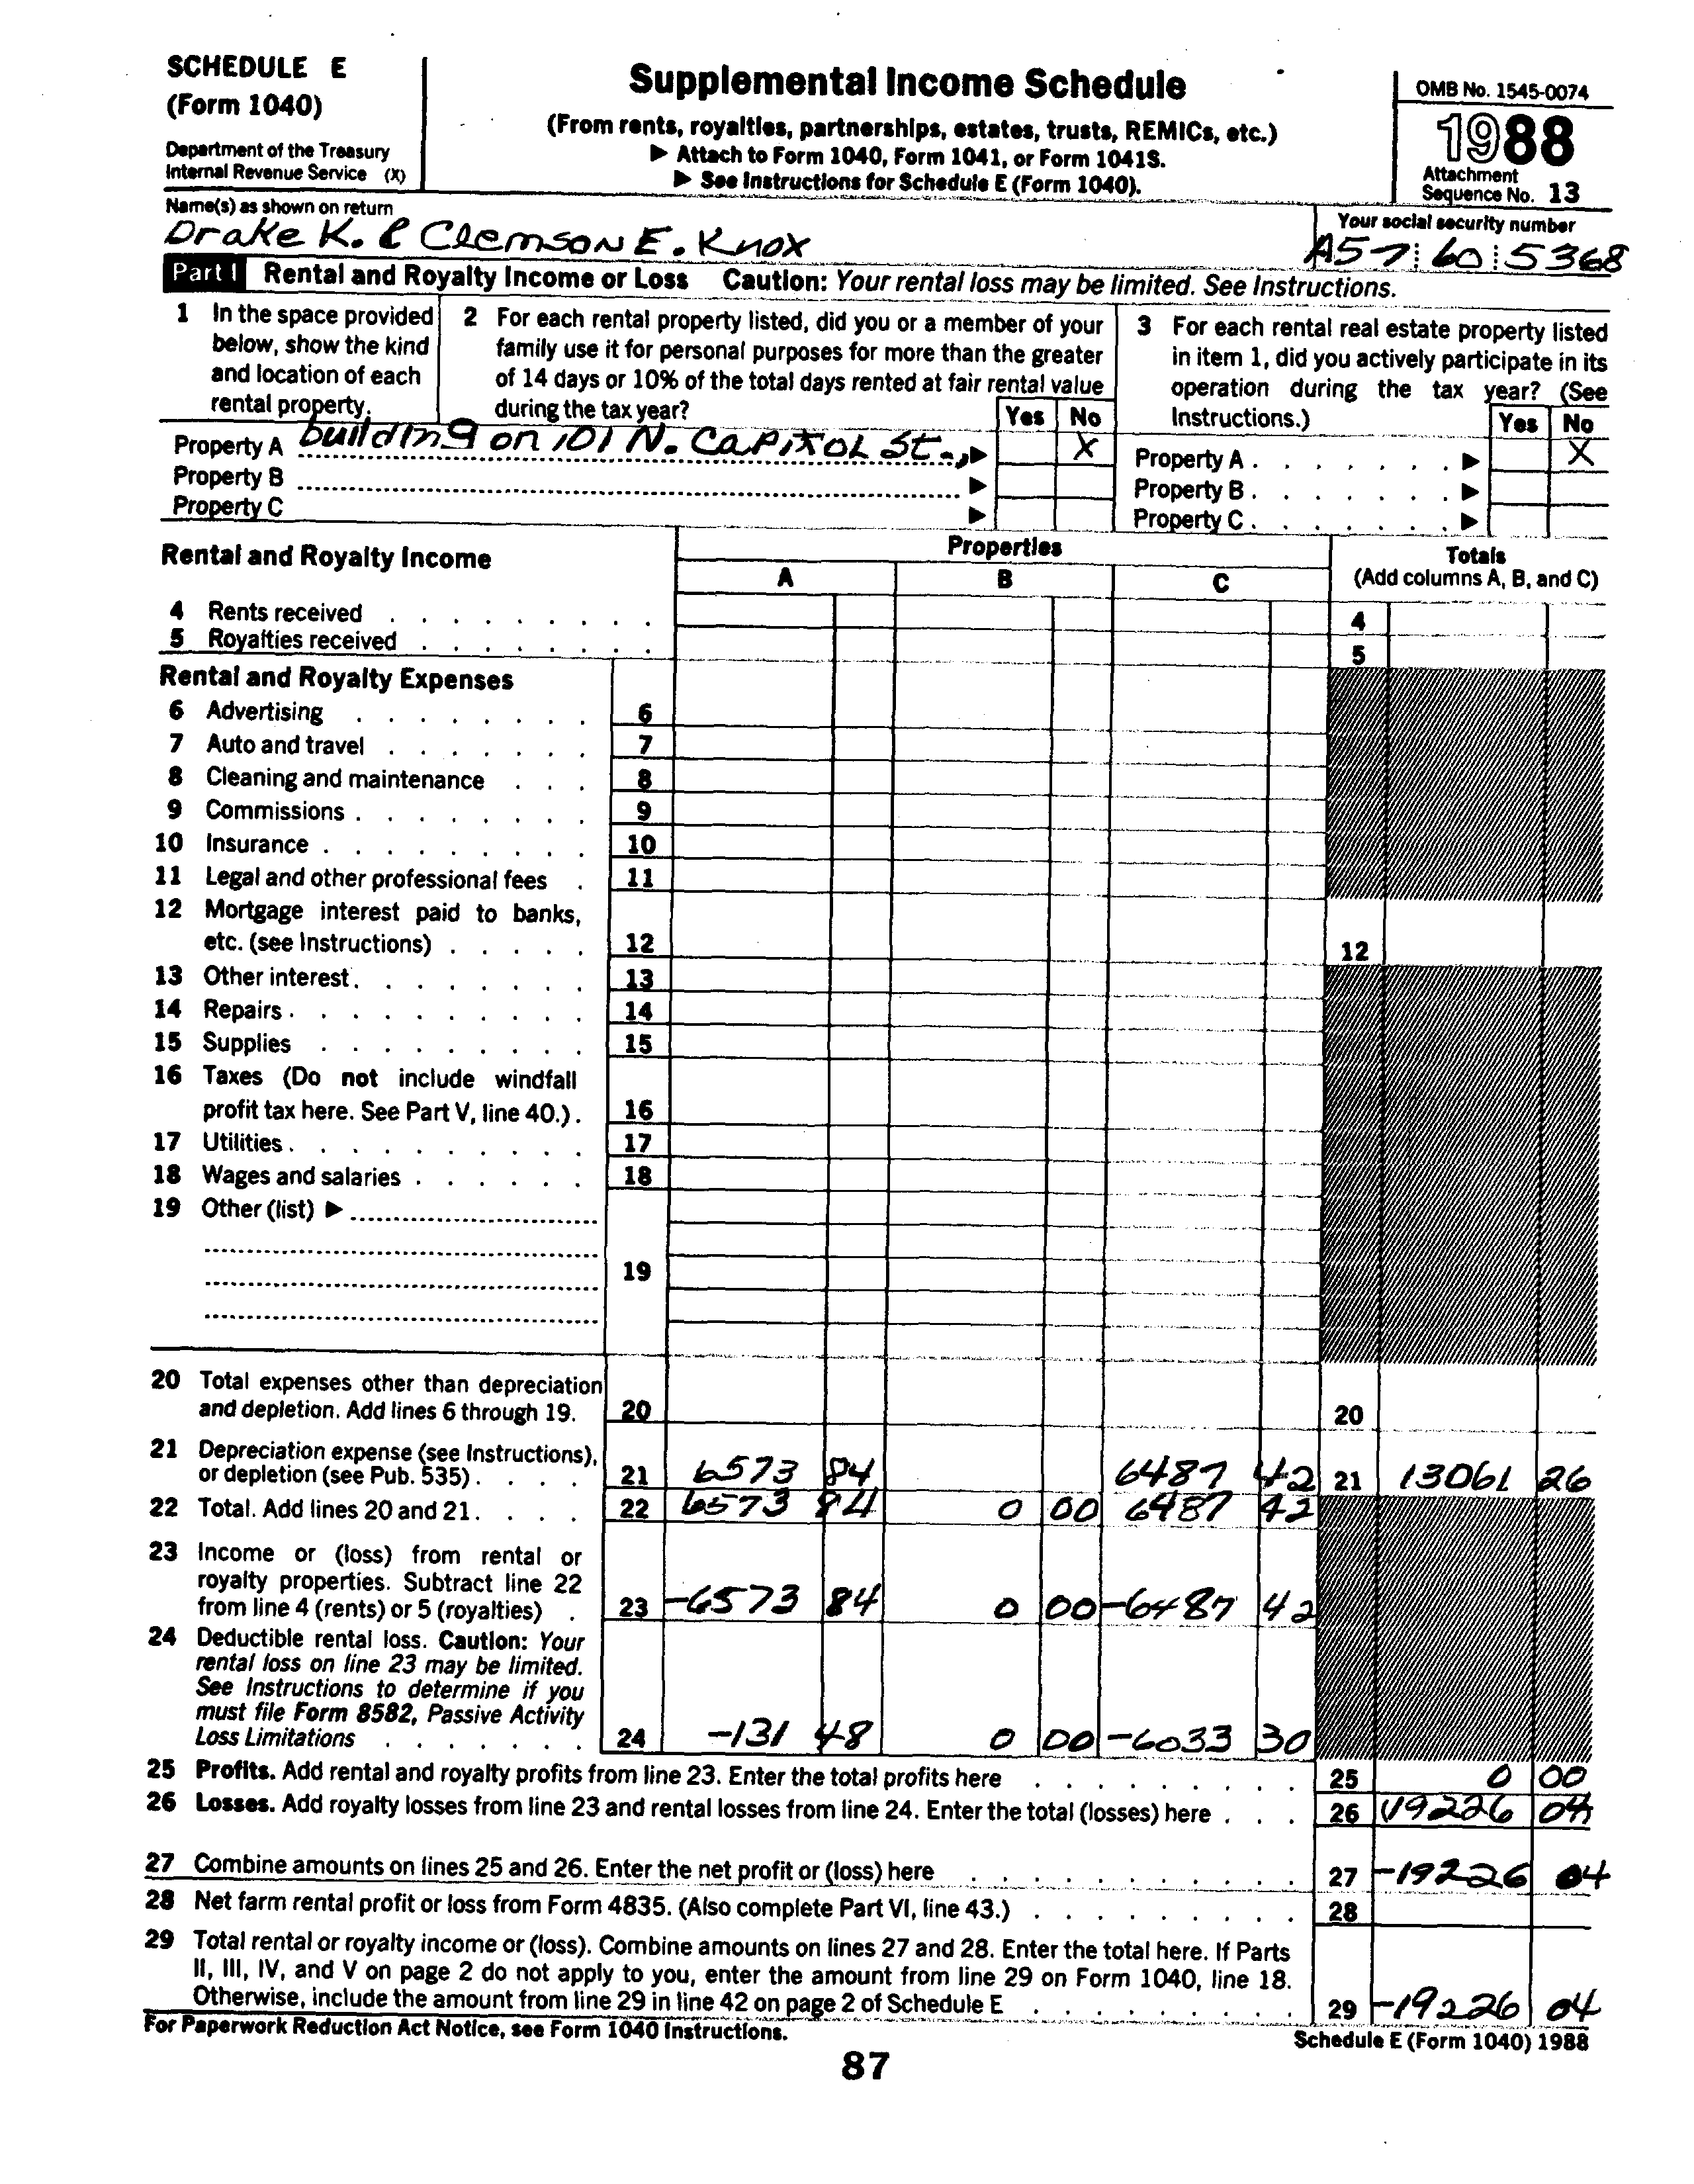 SCHEDULE E
(Form 1040)
Department of the Treasury
Internal Revenue Service (X)
Supplemental Income Schedule
(From rents, royalties, partnerships, estates, trusts, REMICs, etc.)
▶ Attach to Form 1040, Form 1041, or Form 1041S.
▶ See Instructions for Schedule E (Form 1040).
OMB No. 1545-0074
1988
Attachment
Sequence No. 13
Name(s) as shown on return
Drake K. & Clemson E. Knox
Your social security number
A57 60 5368
Part I Rental and Royalty Income or Loss Caution: Your rental loss may be limited. See Instructions.
1 In the space provided
below, show the kind
and location of each
rental property.
2 For each rental property listed, did you or a member of your
family use it for personal purposes for more than the greater
of 14 days or 10% of the total days rented at fair rental value
during the tax year?
Yes No
3 For each rental real estate property listed
in item 1, did you actively participate in its
operation during the tax year? (See
Instructions.)
Yes No
Property A building on 101 N. CAPITOL St., ▶ X
Property B ▶
Property C ▶
Property A ▶ X
Property B ▶
Property C ▶
Rental and Royalty Income
Properties
A B C
Totals
(Add columns A, B, and C)
4 Rents received 4
5 Royalties received 5
Rental and Royalty Expenses
6 Advertising 6
7 Auto and travel 7
8 Cleaning and maintenance 8
9 Commissions 9
10 Insurance 10
11 Legal and other professional fees 11
12 Mortgage interest paid to banks,
etc. (see Instructions) 12 12
13 Other interest 13
14 Repairs 14
15 Supplies 15
16 Taxes (Do not include windfall
profit tax here. See Part V, line 40.) 16
17 Utilities 17
18 Wages and salaries 18
19 Other (list) ▶
19
20 Total expenses other than depreciation
and depletion. Add lines 6 through 19. 20 20
21 Depreciation expense (see Instructions),
or depletion (see Pub. 535) 21 6573 84 6487 42 21 13061 26
22 Total. Add lines 20 and 21 22 6573 84 0 00 6487 42
23 Income or (loss) from rental or
royalty properties. Subtract line 22
from line 4 (rents) or 5 (royalties) 23 -6573 84 0 00 -6487 42
24 Deductible rental loss. Caution: Your
rental loss on line 23 may be limited.
See Instructions to determine if you
must file Form 8582, Passive Activity
Loss Limitations 24 -131 48 0 00 -6033 30
25 Profits. Add rental and royalty profits from line 23. Enter the total profits here 25 0 00
26 Losses. Add royalty losses from line 23 and rental losses from line 24. Enter the total (losses) here 26 (19226 04)
27 Combine amounts on lines 25 and 26. Enter the net profit or (loss) here 27 -19226 04
28 Net farm rental profit or loss from Form 4835. (Also complete Part VI, line 43.) 28
29 Total rental or royalty income or (loss). Combine amounts on lines 27 and 28. Enter the total here. If Parts
II, III, IV, and V on page 2 do not apply to you, enter the amount from line 29 on Form 1040, line 18.
Otherwise, include the amount from line 29 in line 42 on page 2 of Schedule E 29 -19226 04
For Paperwork Reduction Act Notice, see Form 1040 Instructions.
Schedule E (Form 1040) 1988
87